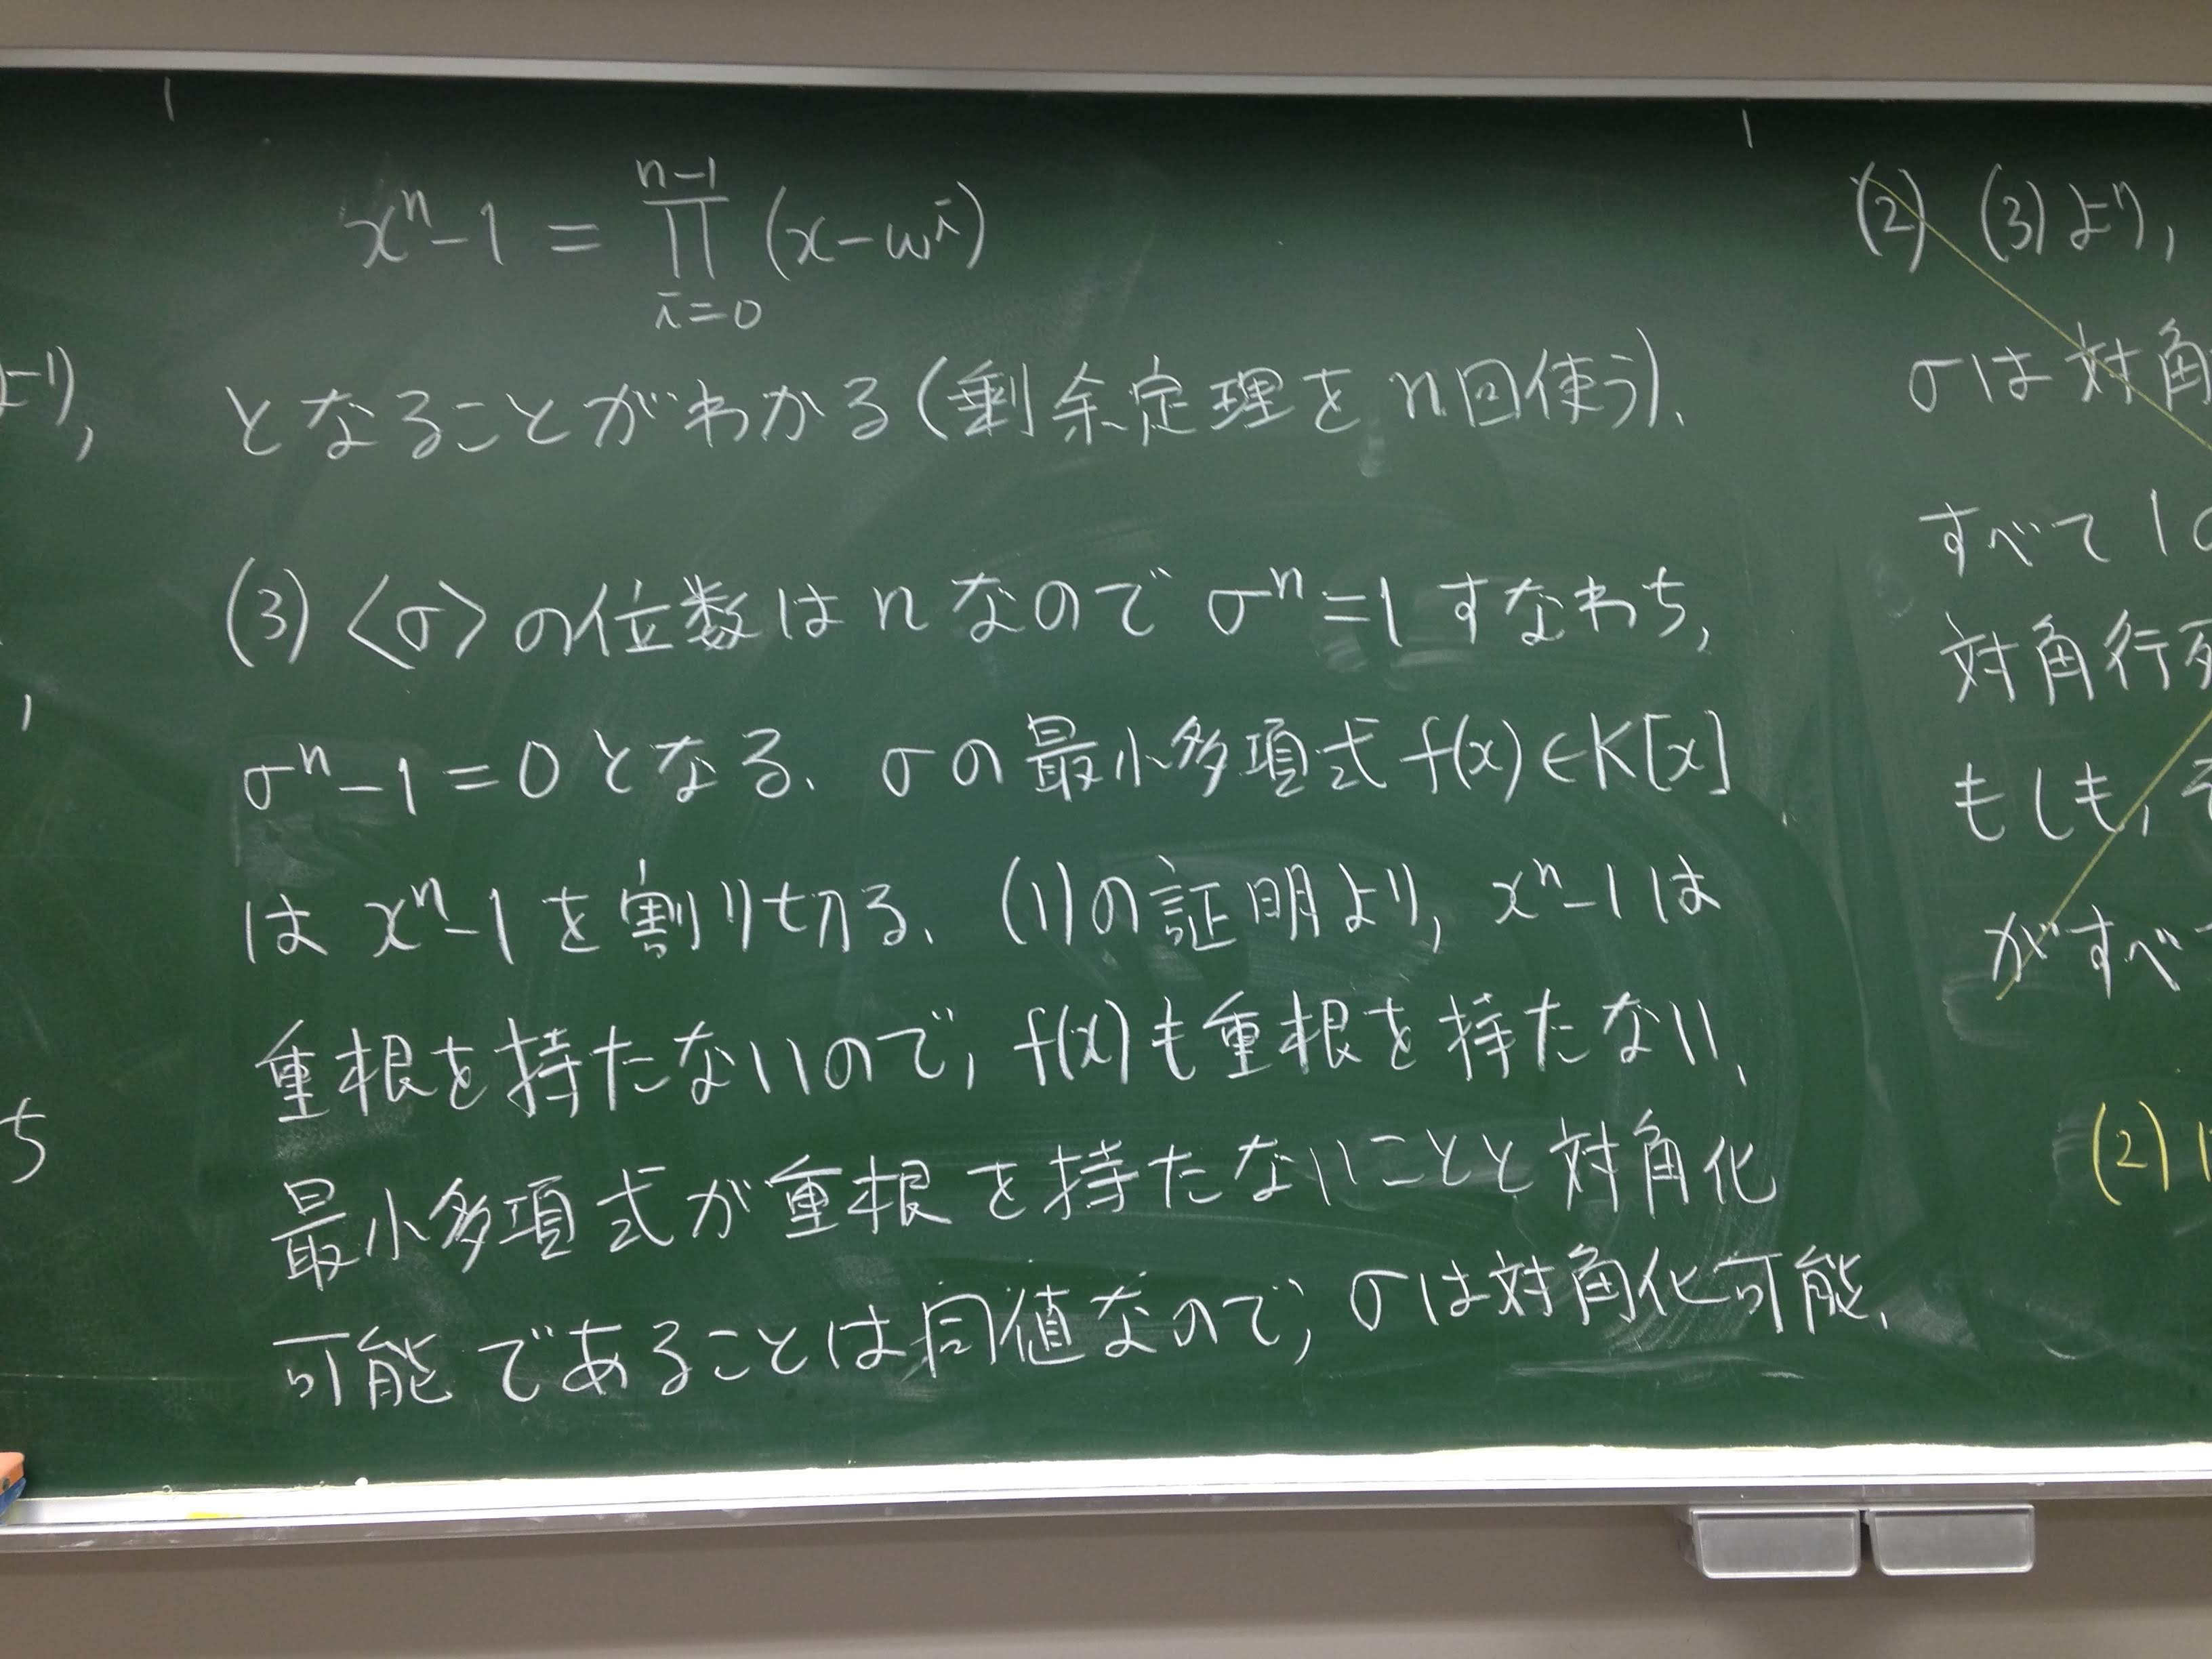 x^n-1 = ∏_{i=0}^{n-1} (x-ω^i)
となることがわかる(剰余定理をn回使う).
(3) <σ>の位数はnなのでσ^n=1すなわち,
σ^n-1=0となる. σの最小多項式f(x)∈K[x]
はx^n-1を割り切る. (1)の証明より, x^n-1は
重根を持たないので, f(x)も重根を持たない.
最小多項式が重根を持たないことと対角化
可能であることは同値なので, σは対角化可能.
(2) (3)より,
σは対角
すべて1
対角行列
もしも,
がすべ
(2)
ち